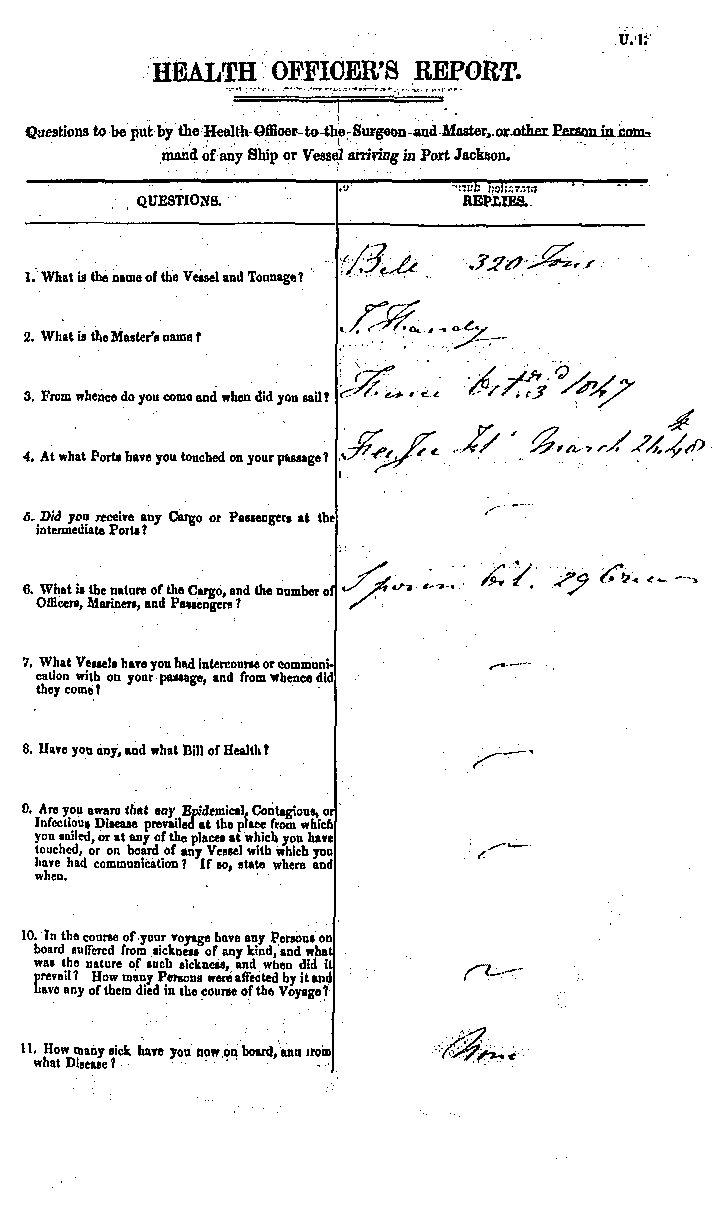 U. 1.
HEALTH OFFICER'S REPORT.
Questions to be put by the Health Officer to the Surgeon and Master, or other Person in com-
mand of any Ship or Vessel arriving in Port Jackson.
QUESTIONS.
REPLIES.
1. What is the name of the Vessel and Tonnage?
320 Tons
2. What is the Master's name?
Handy
3. From whence do you come and when did you sail?
Hence Oct. 1847
4. At what Ports have you touched on your passage?
Fee Jee March
5. Did you receive any Cargo or Passengers at the
intermediate Ports?
—
6. What is the nature of the Cargo, and the number of
Officers, Mariners, and Passengers?
Sperm Oil. 29 Crew
7. What Vessels have you had intercourse or communi-
cation with on your passage, and from whence did
they come?
—
8. Have you any, and what Bill of Health?
—
9. Are you aware that any Epidemical, Contagious, or
Infectious Disease prevailed at the place from which
you sailed, or at any of the places at which you have
touched, or on board of any Vessel with which you
have had communication? If so, state where and
when.
—
10. In the course of your voyage have any Persons on
board suffered from sickness of any kind, and what
was the nature of such sickness, and when did it
prevail? How many Persons were affected by it and
have any of them died in the course of the Voyage?
—
11. How many sick have you now on board, and from
what Disease?
None